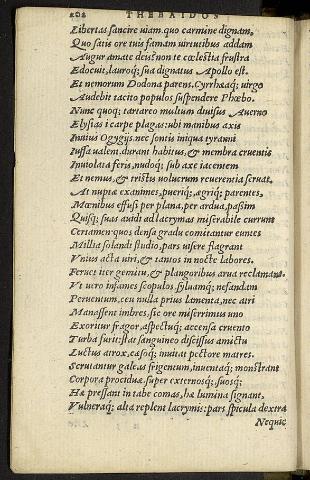 202 THEBAIDOS
Libertas sancire uiam. quo carmine dignam,
Quo satis ore tuis famam uirtutibus addam
Augur amate deis? non te cœlestia frustra
Edocuit, lauroq; sua dignatus Apollo est.
Et nemorum Dodona parens, Cyrrhæaq; uirgo
Audebit tacito populos suspendere Phœbo.
Nunc quoq; tartareo multum diuisus Auerno
Elysias i carpe plagas: ubi manibus axis
Inuius Ogygijs, nec sontis iniqua tyranni
Iussa ualent, durant habitus, & membra cruentis
Inuiolata feris, nudoq; sub axe iacentem
Et nemus, & tristis uolucrum reuerentia seruat.
At nuptæ exanimes, pueriq;, ægriq; parentes,
Mœnibus effusi per plana, per ardua, passim
Quisq; suas auidi ad lacrymas miserabile currunt
Certamen: quos densa gradu comitantur euntes
Millia solandi studio, pars uisere flagrant
Vnius acta uiri, & tantos in nocte labores.
Feruet iter gemitu, & plangoribus arua reclamant.
Vt uero infames scopulos, syluamq; nefandam
Peruentum, ceu nulla prius lamenta, nec atri
Manassent imbres, sic ore miserrimus uno
Exoritur fragor, aspectuq; accensa cruento
Turba furit: stat sanguineo discissus amictu
Luctus atrox, cæsoq; inuitat pectore matres.
Scrutantur galeas frigentum, inuentaq; monstrant
Corpora prociduæ super externosq; suosq;
Hæ pressant in tabe comas, hæ lumina signant,
Vulneraq; alta replent lacrymis: pars spicula dextra
Nequic